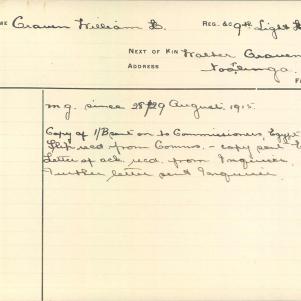 ME Craven William L. REG. &c 9th Light H
NEXT OF KIN Walter Craven
ADDRESS
F
m.g. since 28/29 August. 1915.
Copy of 1/B sent on to Commissioners, Egypt
Slip recd from Comms. - copy sent
Letter of ack recd. from Inquirer.
Further letter sent Inquirer.